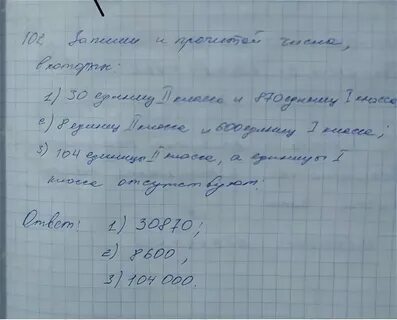 102 Запиши и прочитай числа,
в которых:
1) 30 единиц II класса и 870 единиц I класса
2) 8 единиц II класса и 600 единиц I класса;
3) 104 единицы II класса, а единицы I
класса отсутствуют.
Ответ: 1) 30870;
2) 8600;
3) 104 000.